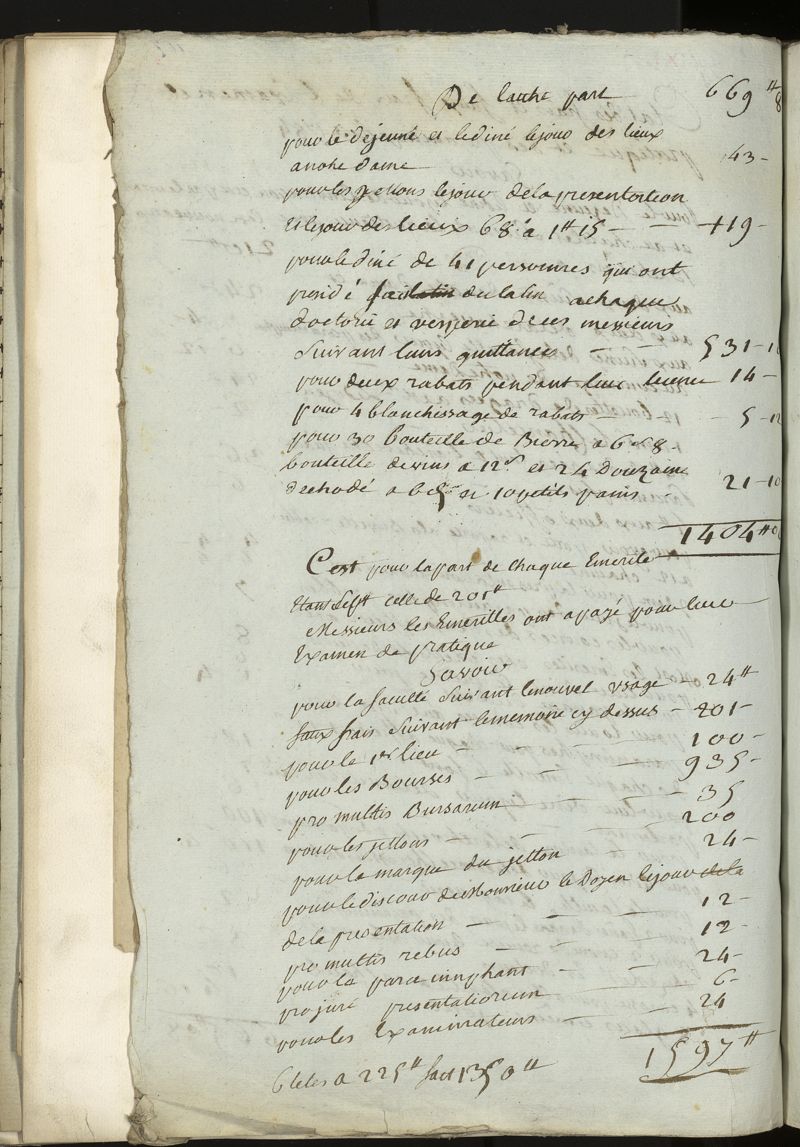 De lautre part 669 ₶ 8
pour le dejeuné et le diné le jour des lieux
a notre dame 143 -
pour les jettons le jour de la presentation
et le jour des lieux 68 a 1₶ 15 - - 119 -
pour le diné de 41 personnes qui ont
presidé du latin a chaque
doctorié et vesperie de ces messieurs
suivant leurs quittances - - 531 - 10
pour deux rabats pendant leur licence 14 -
pour 4 blanchissage de rabats - - 5 - 12
pour 30 bouteille de Bierre a 6 s 8
bouteille de vins a 12 s et 24 Douzaine
d'echodé a 6 s et 10 petits pains 21 - 10
1404 ₶
C'est pour la part de chaque Emerite
etant sept celle de 201 ₶
Messieurs les Emerittes ont a payé pour leur
Examen de pratique
Savoir
pour la faculté suivant le nouvel usage - 24 ₶
faux frais suivant le memoire cy dessus - 201 -
pour le 1er lieu - - - 100 -
pour les Bourses - - - 935 -
pro multis Bursarum - - 35
pour les jettons - - - 200
pour la marque du jetton - - 24 -
pour le discour de Monsieur le Doyen le jour de la
de la presentation - - - 12 -
pro multis rebus - - - 12 -
pour la paranymphant - - 24 -
pro jure presentatiorum - - 6 -
pour les Examinateurs - - 24
1597 ₶
6 tetes a 225 ₶ fait 1350 ₶